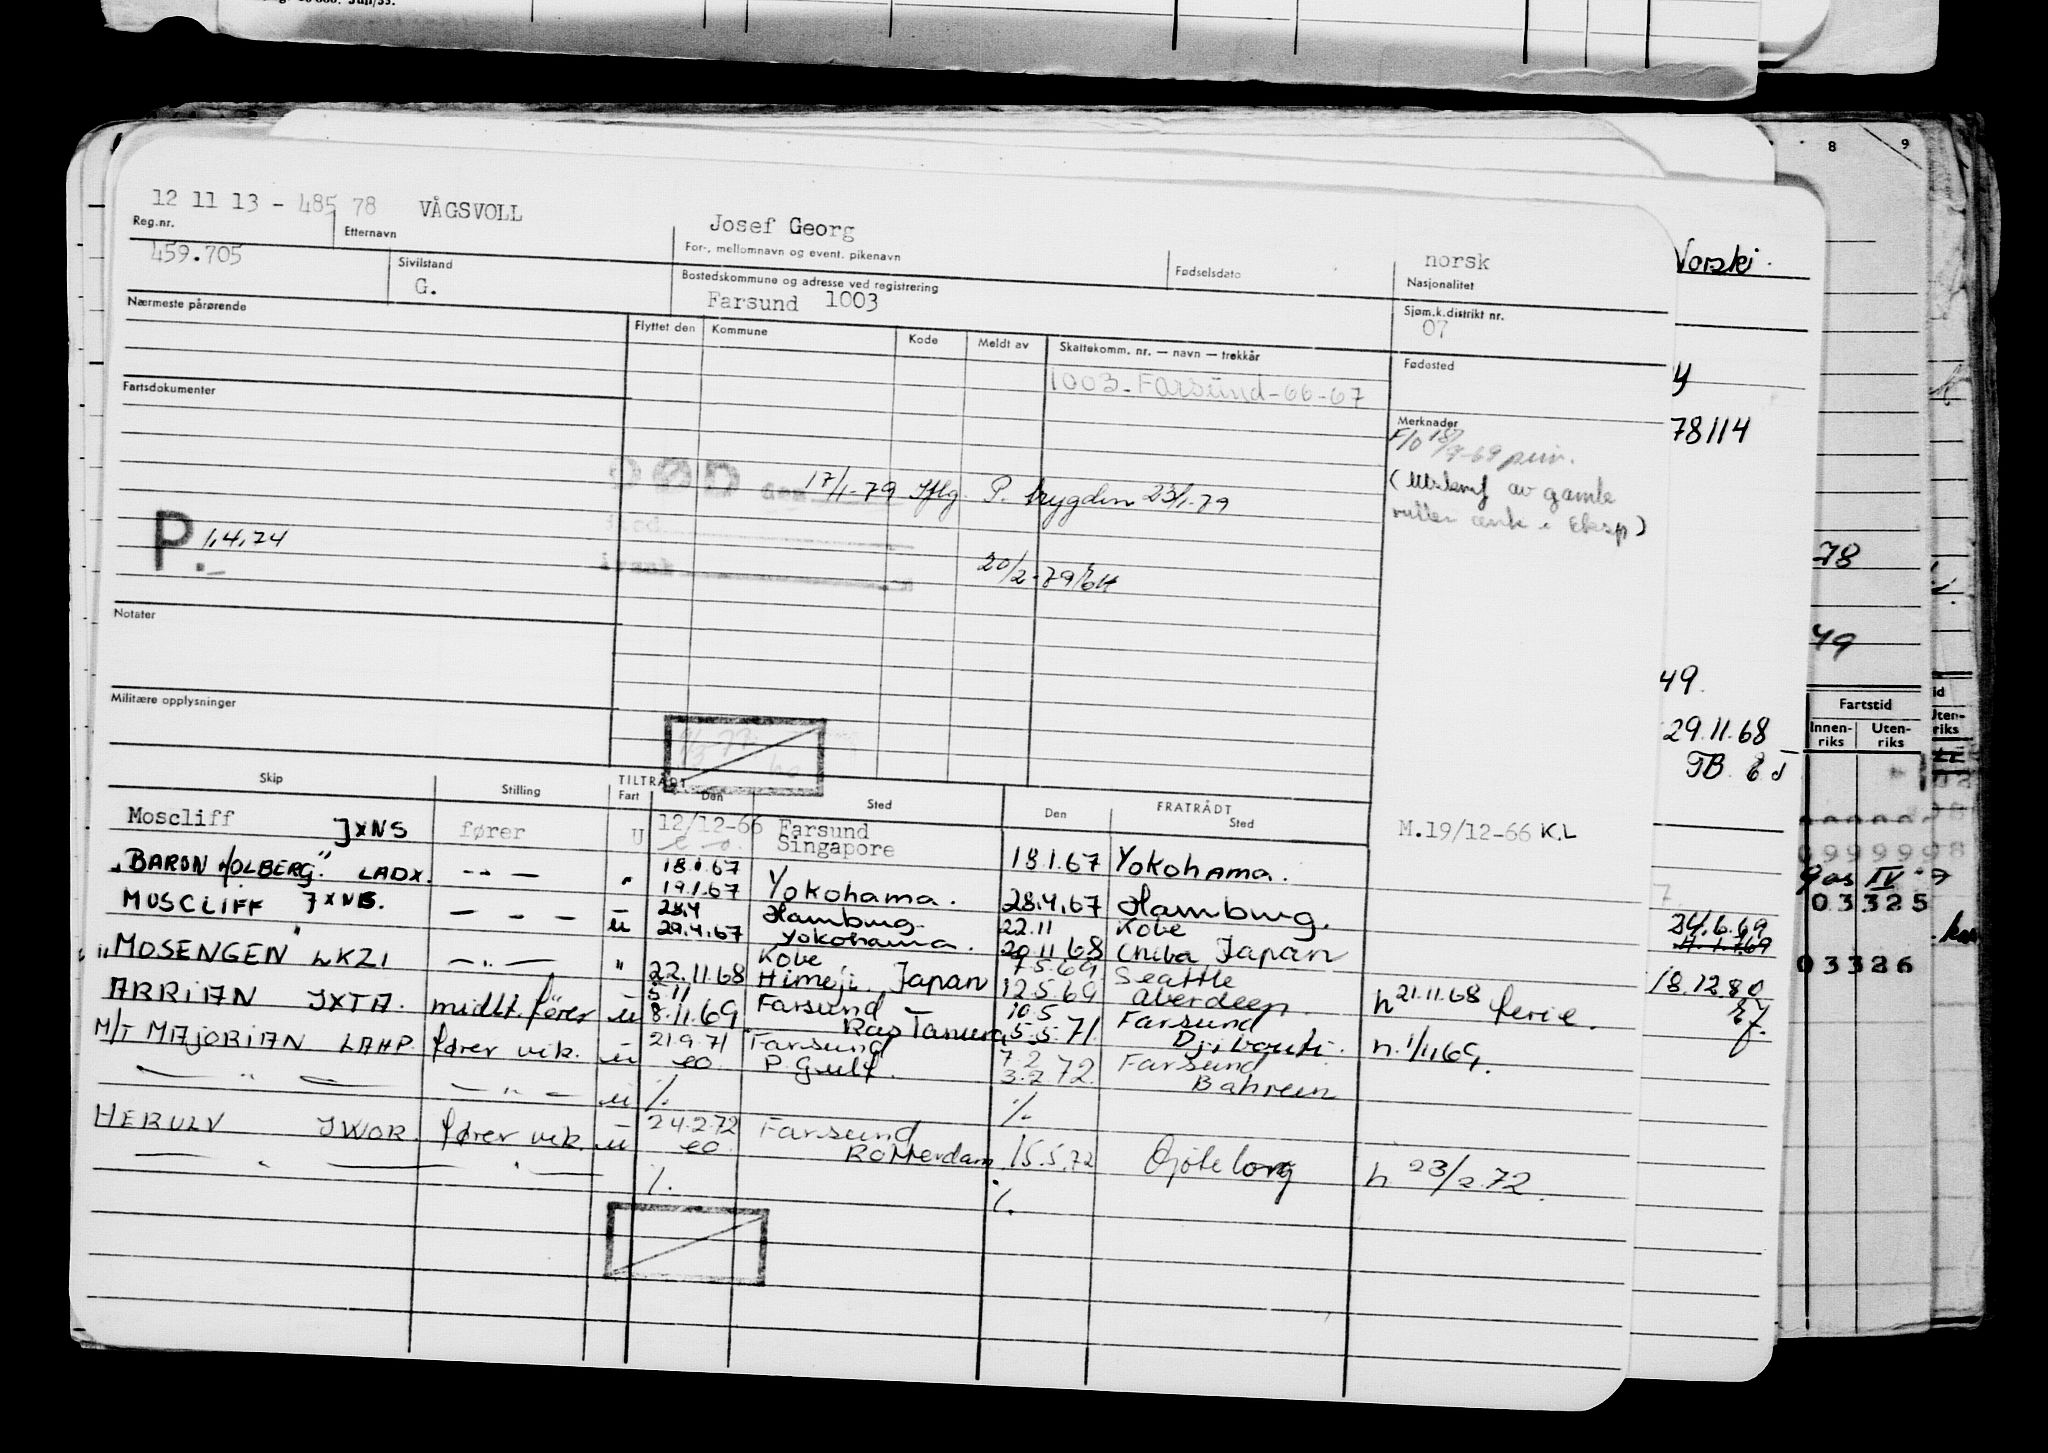 12 11 13 - 485 78 VÅGSVOLL Josef Georg norsk
Reg.nr. Etternavn For-, mellomnavn og event. pikenavn Fødselsdato Nasjonalitet
459.705 Sivilstand G. Bostedskommune og adresse ved registrering Farsund 1003 Sjøm.k.distrikt nr. 07
Nærmeste pårørende Flyttet den Kommune Kode Meldt av Skattekomm. nr. — navn — trekkår Fødested
1003-Farsund-66-67
Fartsdokumenter Merknader
(Utskrift av gamle
17/1-79 Iflg. P. trygden 23/1-79
P. 1.4.74
20/2-79
Notater
Militære opplysninger
Skip Stilling TILTRÅDT Fart Den Sted FRATRÅDT Den Sted
Moscliff JXNS fører U 12/12-66 Farsund M.19/12-66 K.L
e o. Singapore 18.1.67 Yokohama.
"BARON HOLBERG" LADX. -"- " 18.1.67
19.1.67 Yokohama. 28.4.67 Hamburg.
MUSCLIFF JXNS. - - - u 28.4 Hamburg 22.11 Kobe
29.4.67 Yokohama. 20.11.68 Chiba Japan
"MOSENGEN" LKZI -"- " 22.11.68 Kobe 7.5.69 Seattle
Himeji Japan 12.5.69 Aberdeen. h 21.11.68 ferie.
ARRIAN JXTA. midlt. fører u 5.11 Farsund 10.5 Farsund
8.11.69 Ras Tanura 5.5.71. Djibouti. n. 1/11 69.
M/T MAJORIAN LAHP. fører vik. u 21.9.71 Farsund 7.2 Farsund
eo P. Gulf. 3.2 72. Bahrein
— " — — " — u %. %.
HERULV JWOR. fører vik. u 24.2.72 Farsund
eo. Rotterdam 15.5.72 Gøteborg h 23/2 72.
— " — — " — %. %.
Norsk
78114
78
49
49.
29.11.68
8 9
Fartstid
Innen-riks Uten-riks
03325
24.6.69
03326
18.12.80